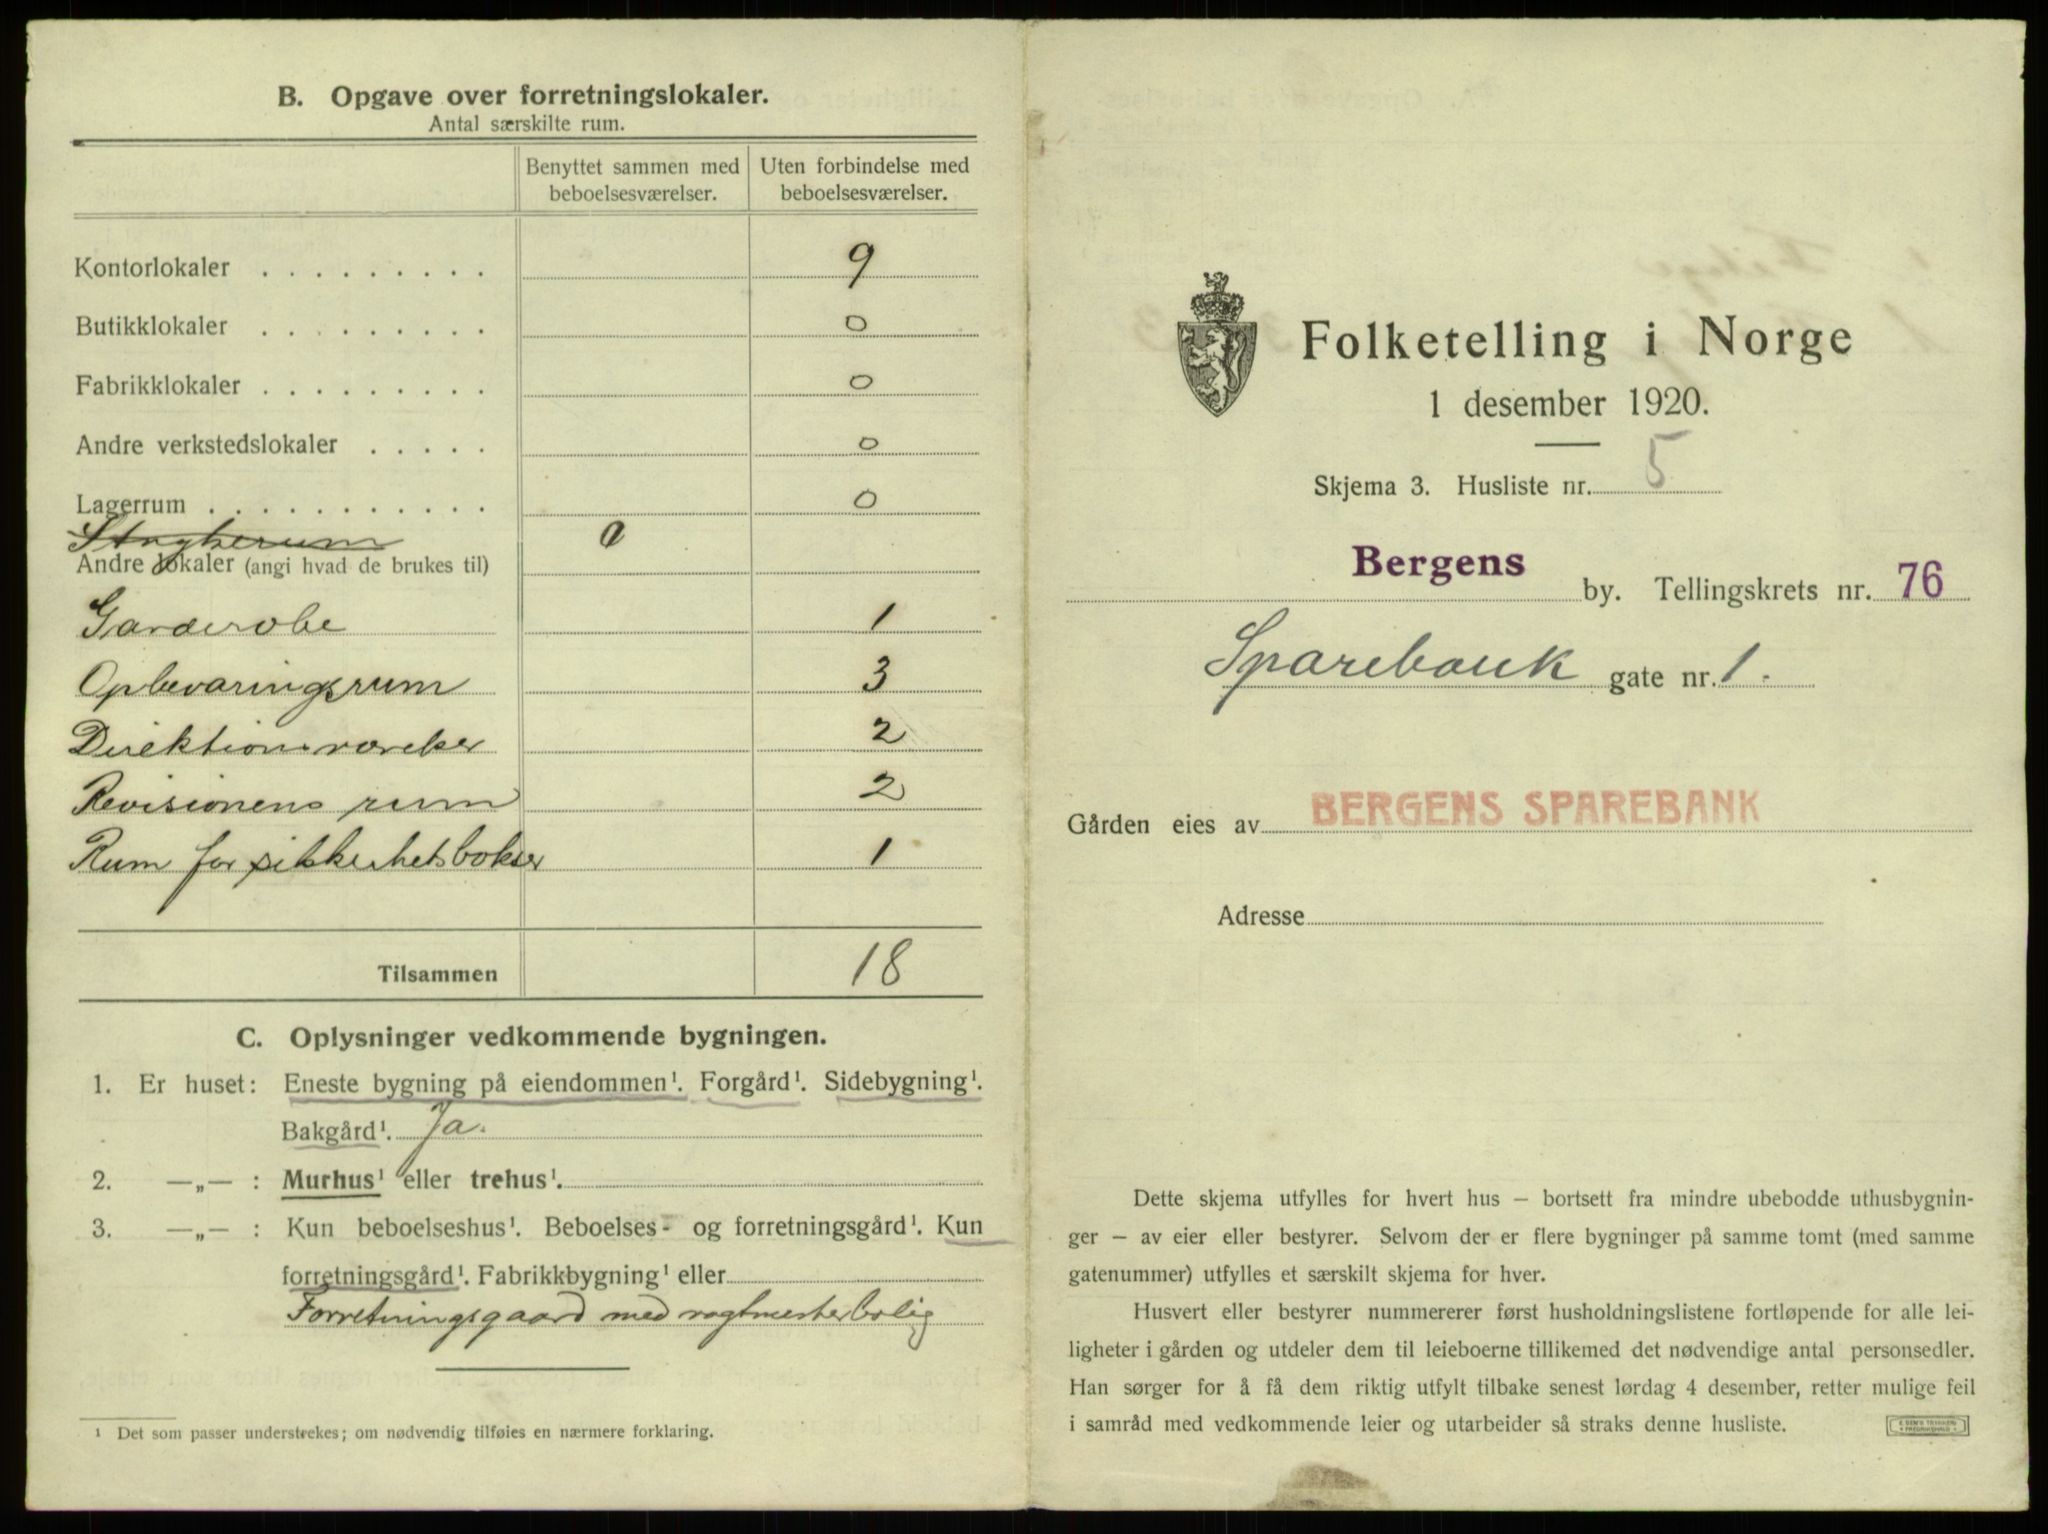 B. Opgave over forretningslokaler.
Antal særskilte rum.
Benyttet sammen med beboelsesværelser.
Uten forbindelse med beboelsesværelser.
Kontorlokaler . . . . . . . . . 9
Butikklokaler . . . . . . . . . 0
Fabrikklokaler . . . . . . . . . 0
Andre verkstedslokaler . . . . . 0
Lagerrum . . . . . . . . . . . . 0
0
Andre lokaler (angi hvad de brukes til)
Garderobe 1
Opbevaringsrum 3
Direktionsværelser 2
Revisionens rum 2
Rum for sikkerhetsbokser 1
Tilsammen 18
C. Oplysninger vedkommende bygningen.
1. Er huset: Eneste bygning på eiendommen¹. Forgård¹. Sidebygning¹.
Bakgård¹. Ja.
2. —„— : Murhus¹ eller trehus¹.
3. —„— : Kun beboelseshus¹. Beboelses- og forretningsgård¹. Kun
forretningsgård¹. Fabrikkbygning¹ eller
Forretningsgaard med vagtmesterbolig
¹ Det som passer understrekes; om nødvendig tilføies en nærmere forklaring.
Folketelling i Norge
1 desember 1920.
Skjema 3. Husliste nr. 5
Bergens by. Tellingskrets nr. 76
Sparebank gate nr. 1.
Gården eies av BERGENS SPAREBANK
Adresse
Dette skjema utfylles for hvert hus – bortsett fra mindre ubebodde uthusbygnin-
ger – av eier eller bestyrer. Selvom der er flere bygninger på samme tomt (med samme
gatenummer) utfylles et særskilt skjema for hver.
Husvert eller bestyrer nummererer først husholdningslistene fortløpende for alle lei-
ligheter i gården og utdeler dem til leieboerne tillikemed det nødvendige antal personsedler.
Han sørger for å få dem riktig utfylt tilbake senest lørdag 4 desember, retter mulige feil
i samråd med vedkommende leier og utarbeider så straks denne husliste.